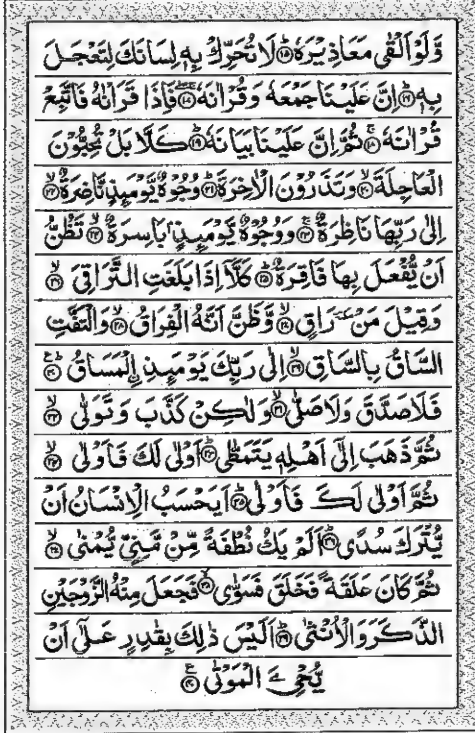 وَّلَوْ اَلْقٰى مَعَاذِيْرَهٗ ﴿۱۵﴾ لَا تُحَرِّكْ بِهٖ لِسَانَكَ لِتَعْجَلَ
بِهٖ ﴿۱۶﴾ اِنَّ عَلَيْنَا جَمْعَهٗ وَقُرْاٰنَهٗ ﴿۱۷﴾ فَاِذَا قَرَاْنٰهُ فَاتَّبِعْ
قُرْاٰنَهٗ ﴿۱۸﴾ ثُمَّ اِنَّ عَلَيْنَا بَيَانَهٗ ﴿۱۹﴾ كَلَّا بَلْ تُحِبُّوْنَ
الْعَاجِلَةَ ﴿۲۰﴾ وَتَذَرُوْنَ الْاٰخِرَةَ ﴿۲۱﴾ وُجُوْهٌ يَّوْمَىِٕذٍ نَّاضِرَةٌ ﴿۲۲﴾
اِلٰى رَبِّهَا نَاظِرَةٌ ﴿۲۳﴾ وَوُجُوْهٌ يَّوْمَىِٕذٍۢ بَاسِرَةٌ ﴿۲۴﴾ تَظُنُّ
اَنْ يُّفْعَلَ بِهَا فَاقِرَةٌ ﴿۲۵﴾ كَلَّاۤ اِذَا بَلَغَتِ التَّرَاقِيَ ﴿۲۶﴾
وَقِيْلَ مَنْ ٚ رَاقٍ ﴿۲۷﴾ وَّظَنَّ اَنَّهُ الْفِرَاقُ ﴿۲۸﴾ وَالْتَفَّتِ
السَّاقُ بِالسَّاقِ ﴿۲۹﴾ اِلٰى رَبِّكَ يَوْمَىِٕذِ اِۨلْمَسَاقُ ﴿۳۰﴾
فَلَا صَدَّقَ وَلَا صَلّٰى ﴿۳۱﴾ وَلٰكِنْ كَذَّبَ وَتَوَلّٰى ﴿۳۲﴾
ثُمَّ ذَهَبَ اِلٰۤى اَهْلِهٖ يَتَمَطّٰى ﴿۳۳﴾ اَوْلٰى لَكَ فَاَوْلٰى ﴿۳۴﴾
ثُمَّ اَوْلٰى لَكَ فَاَوْلٰى ﴿۳۵﴾ اَيَحْسَبُ الْاِنْسَانُ اَنْ
يُّتْرَكَ سُدًى ﴿۳۶﴾ اَلَمْ يَكُ نُطْفَةً مِّنْ مَّنِيٍّ يُّمْنٰى ﴿۳۷﴾
ثُمَّ كَانَ عَلَقَةً فَخَلَقَ فَسَوّٰى ﴿۳۸﴾ فَجَعَلَ مِنْهُ الزَّوْجَيْنِ
الذَّكَرَ وَالْاُنْثٰى ﴿۳۹﴾ اَلَيْسَ ذٰلِكَ بِقٰدِرٍ عَلٰۤى اَنْ
يُّحْيِۦَ الْمَوْتٰى ﴿۴۰﴾